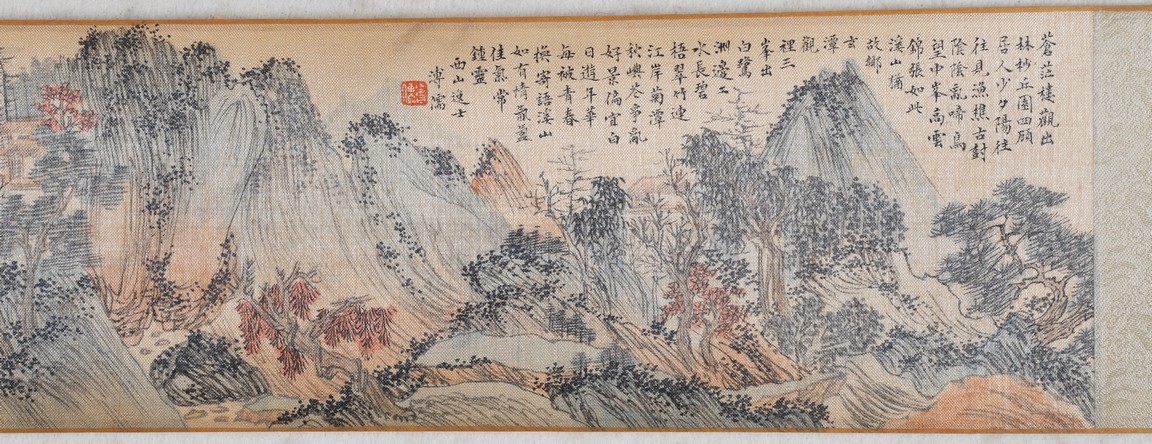 蒼茫樓觀出
林杪丘園四顧
居人少夕陽往
往見漁樵古封
陰陰亂啼鳥
望中峯高雲
錦張如此
溪山猶
故鄉
玄
潭
觀
裡三
峯出
白鷺
洲邊二
水長碧
梧翠竹連
江岸菊潭
秋嶼花爭亂
好景偏宜白
日遊年華
每被青春
換寄語溪山
如有情
佳氣常
鍾靈
西山逸士
溥儒